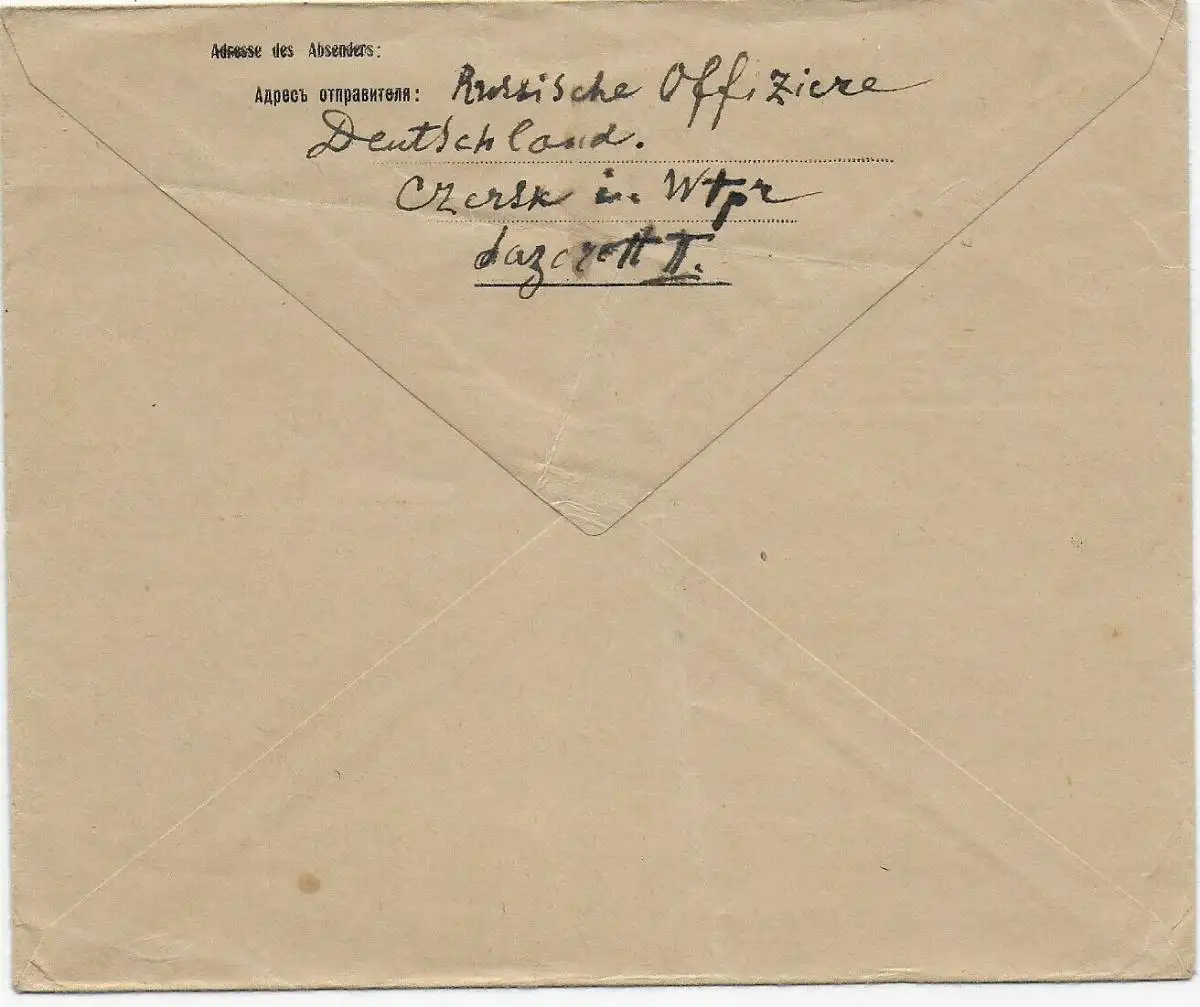 Adresse des Absenders:
Адресъ отправителя: Russische Offiziere
Deutschland.
Czersk in Wtpr
Lazarett II.